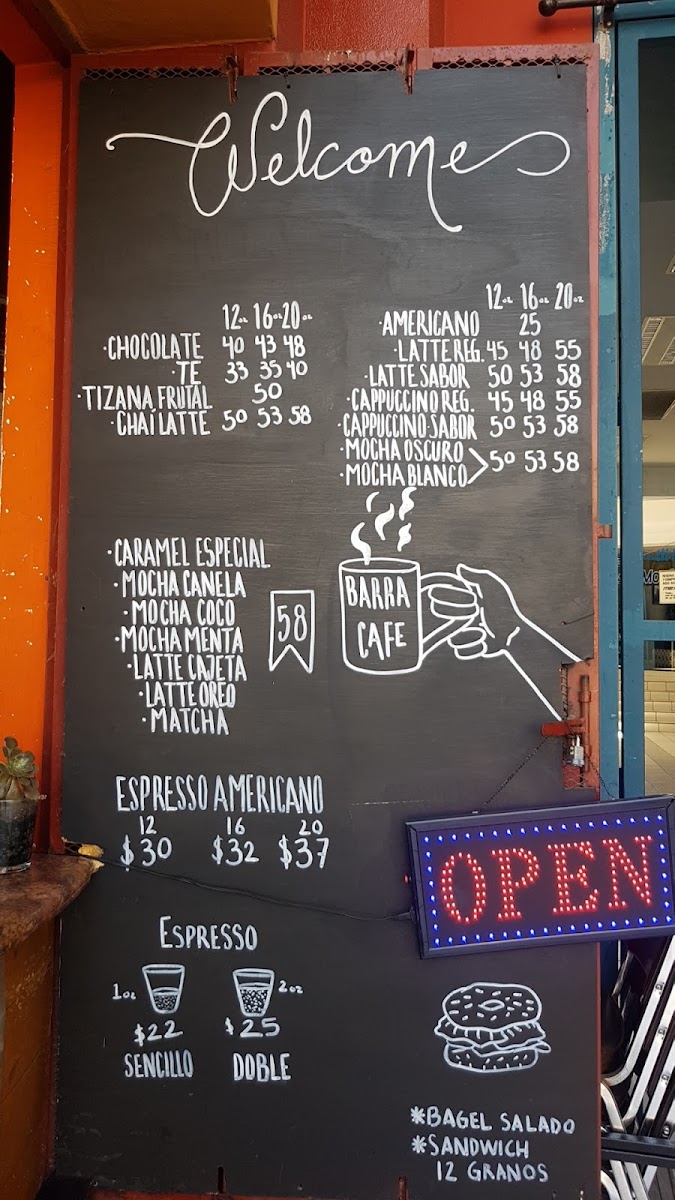 Welcome
12oz 16oz 20oz
·CHOCOLATE 40 43 48
·TE 33 35 40
·TIZANA FRUTAL 50
·CHAI LATTE 50 53 58
12oz 16oz 20oz
·AMERICANO 25
·LATTE REG. 45 48 55
·LATTE SABOR 50 53 58
·CAPPUCCINO REG. 45 48 55
·CAPPUCCINO SABOR 50 53 58
·MOCHA OSCURO
·MOCHA BLANCO 50 53 58
·CARAMEL ESPECIAL
·MOCHA CANELA
·MOCHA COCO
·MOCHA MENTA
·LATTE CAJETA
·LATTE OREO
·MATCHA
58
BARRA
CAFE
ESPRESSO AMERICANO
12 16 20
$30 $32 $37
OPEN
ESPRESSO
1oz 2oz
$22 $25
SENCILLO DOBLE
*BAGEL SALADO
*SANDWICH
12 GRANOS